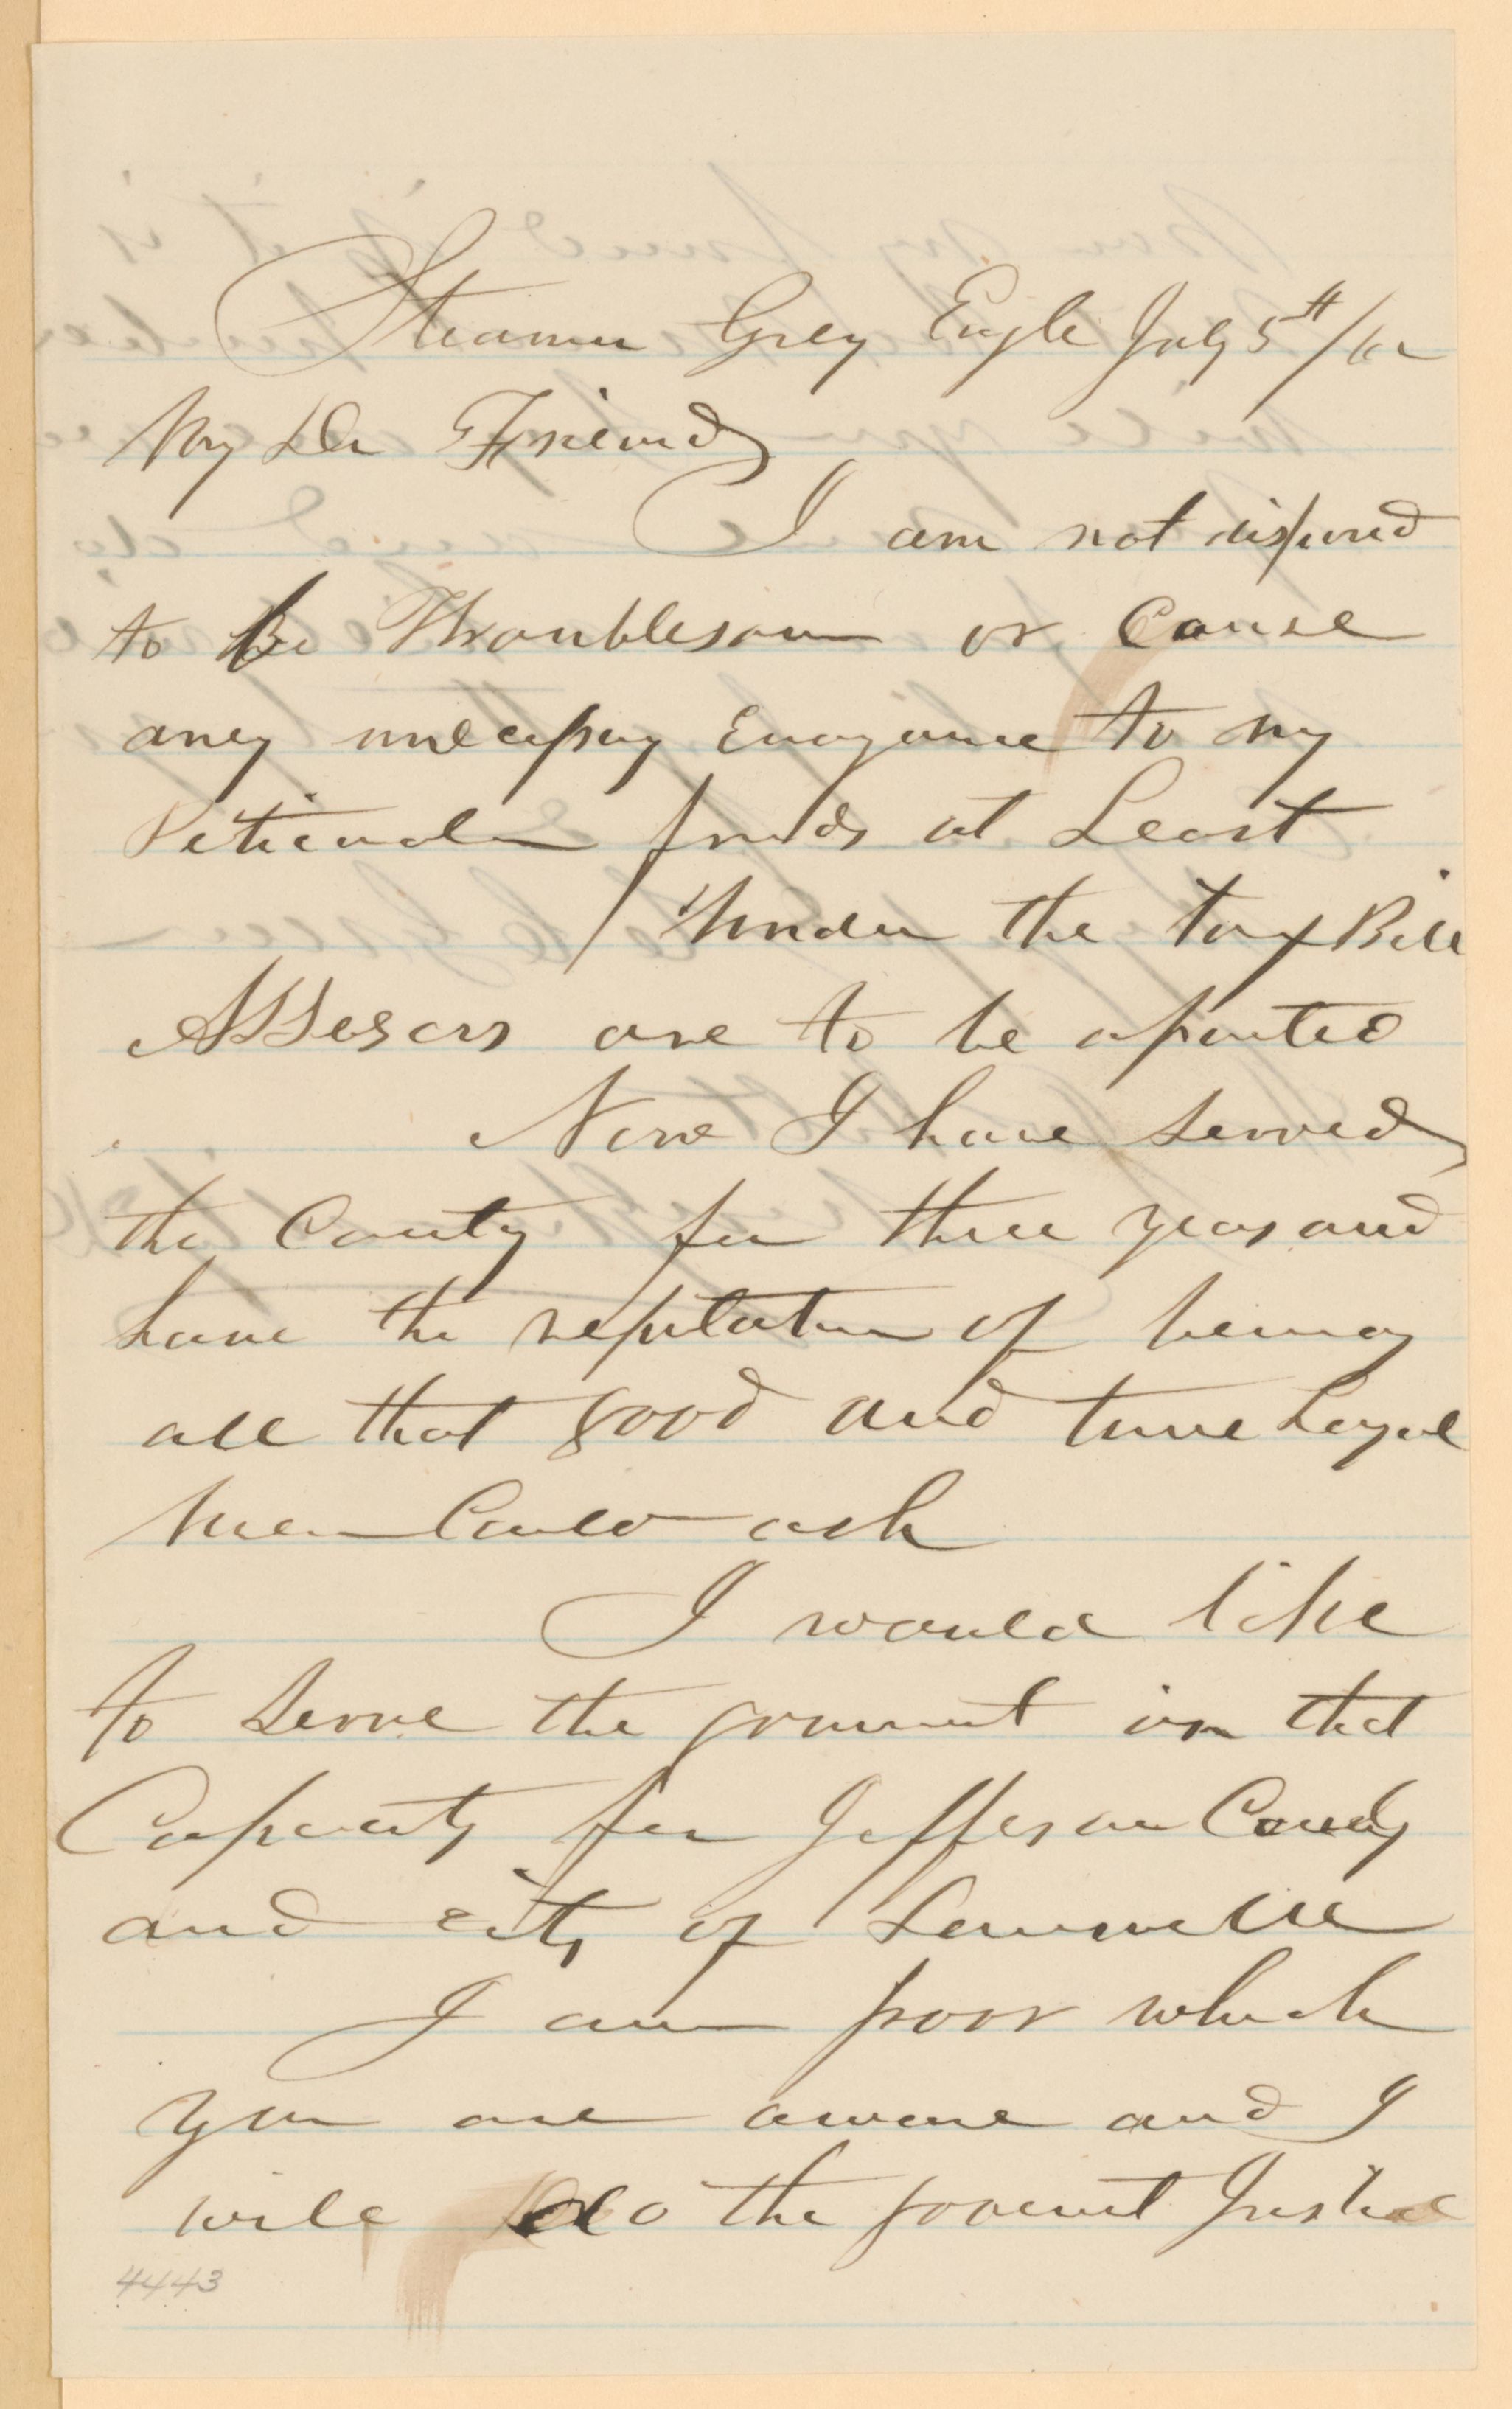 Steamer Grey Eagle July 5th/62
My Dr Friend
I am not disposed
to Be Throublesom or Cause
aney unecessary Enoyance to my
Peticular frinds at Least
Under the tax Bill
Assesors are to be apointed
Now I have served
the County for three years and
have the reputation of being
all that good and true Loyal
men Could ask
I would like
to serve the goverment in that
Capacity for Jefferson County
and city of Louisville
I am poor which
you are aware and I
will do the goverment Justice
4443